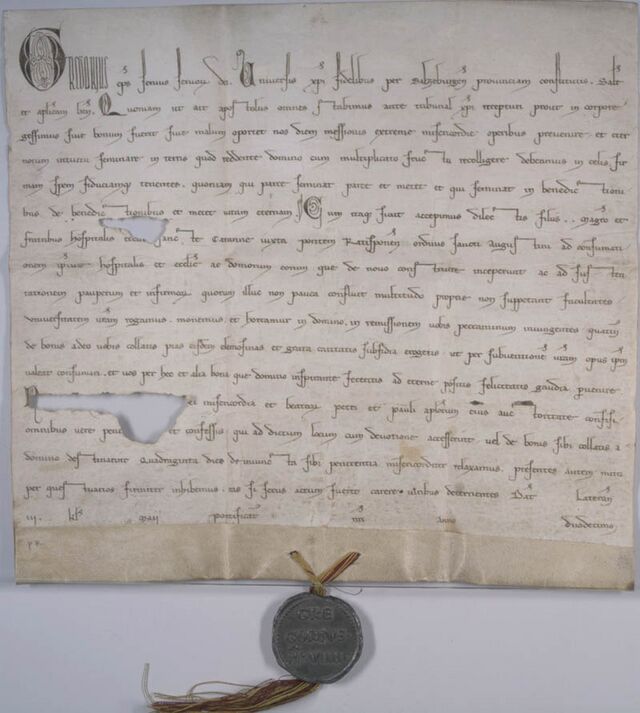 Gregorius eps servus servorum dei. Universis xpi fidelibus per Salzeburgen provinciam constitutis. Salt
et aplicam ben. Quoniam ut ait apostolus omnes stabimus ante tribunal xpi recepturi prout in corpore
gessimus sive bonum fuerit sive malum oportet nos diem messionis extreme misericordie operibus prevenire et eter
norum intuitu seminare in terris quod reddente domino cum multiplicato fructu recolligere debeamus in celis fir
mam spem fiduciamque tenentes. quoniam qui parce seminat parce et metet et qui seminat in benedictioni
bus. de benedictionibus et metet vitam eternam. Cum itaq sicut accepimus dilecti filii .. Magr et
fratres hospitalis sancte Catarine iuxta pontem Ratisponen ordinis sancti Augustini ad consumati
onem ipsius hospitalis et ecclie ac domorum eorum que de novo construere inceperunt ac ad susten
tationem pauperum et infirmorum quorum illuc non pauca confluit multitudo proprie non suppetant facultates
universitatem vram rogamus. monemus. et hortamur in domino. in remissionem vobis peccaminum iniungentes quatin
de bonis a deo vobis collatis pias eisdem elemosinas et grata caritatis subsidia erogetis. ut per subventionem vram opus ipm
valeat consumari. et vos per hec et alia bona que domino inspirante feceritis ad eterne possitis felicitatis gaudia pervenire
ei misericordia et beatorum petri et pauli aplorum eius auctoritate confisi
omnibus vere peni et confessis qui ad dictum locum cum devotione accesserint vel de bonis sibi collatis a
domino destinarint Quadraginta dies de iniuncta sibi penitentia misericorditer relaxamus. presentes autem mitti
per questuarios firmiter inhibemus. eas si secus actum fuerit carere viribus decernentes. Dat Lateran
iii. kls Maii pontificat nri anno duodecimo
GRE
GORIVS
PP VIIII